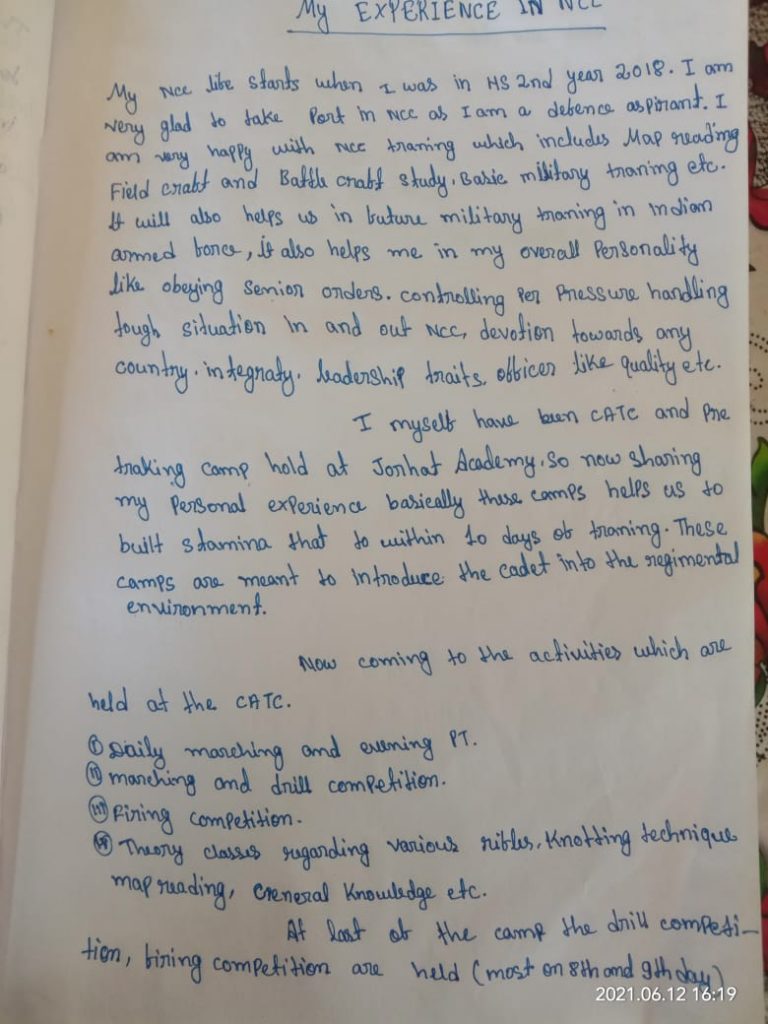 My EXPERIENCE IN NCC
My NCC life starts when I was in HS 2nd year 2018. I am
very glad to take Part in NCC as I am a defence aspirant. I
am very happy with NCC traning which includes Map reading
Field craft and Battle craft study, Basic military traning etc.
It will also helps us in future military traning in Indian
armed force, it also helps me in my overall Personality
like obeying Senior orders. controlling Per Pressure handling
tough situation in and out NCC, devotion towards any
country. integraty. leadership traits, officer like quality etc.
I myself have been CATC and Pre
traking camp hold at Jorhat Academy. So now sharing
my Personal experience basically these camps helps us to
built stamina that to within 10 days of traning. These
camps are meant to introduce the cadet into the regimental
environment.
Now coming to the activities which are
held at the CATC.
(i) Daily marching and evening PT.
(ii) marching and drill competition.
(iii) Firing competition.
(iv) Theory classes regarding various rifles, Knotting technique
map reading, General Knowledge etc.
At last of the camp the drill competi-
tion, firing competition are held (most on 8th and 9th day)
2021.06.12 16:19